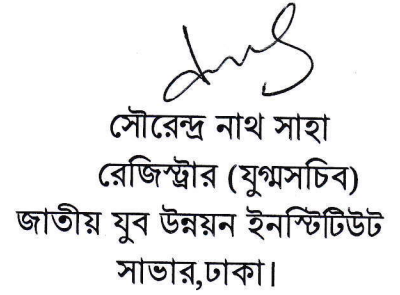 সৌরেন্দ্র নাথ সাহা
রেজিস্ট্রার (যুগ্মসচিব)
জাতীয় যুব উন্নয়ন ইনস্টিটিউট
সাভার,ঢাকা।